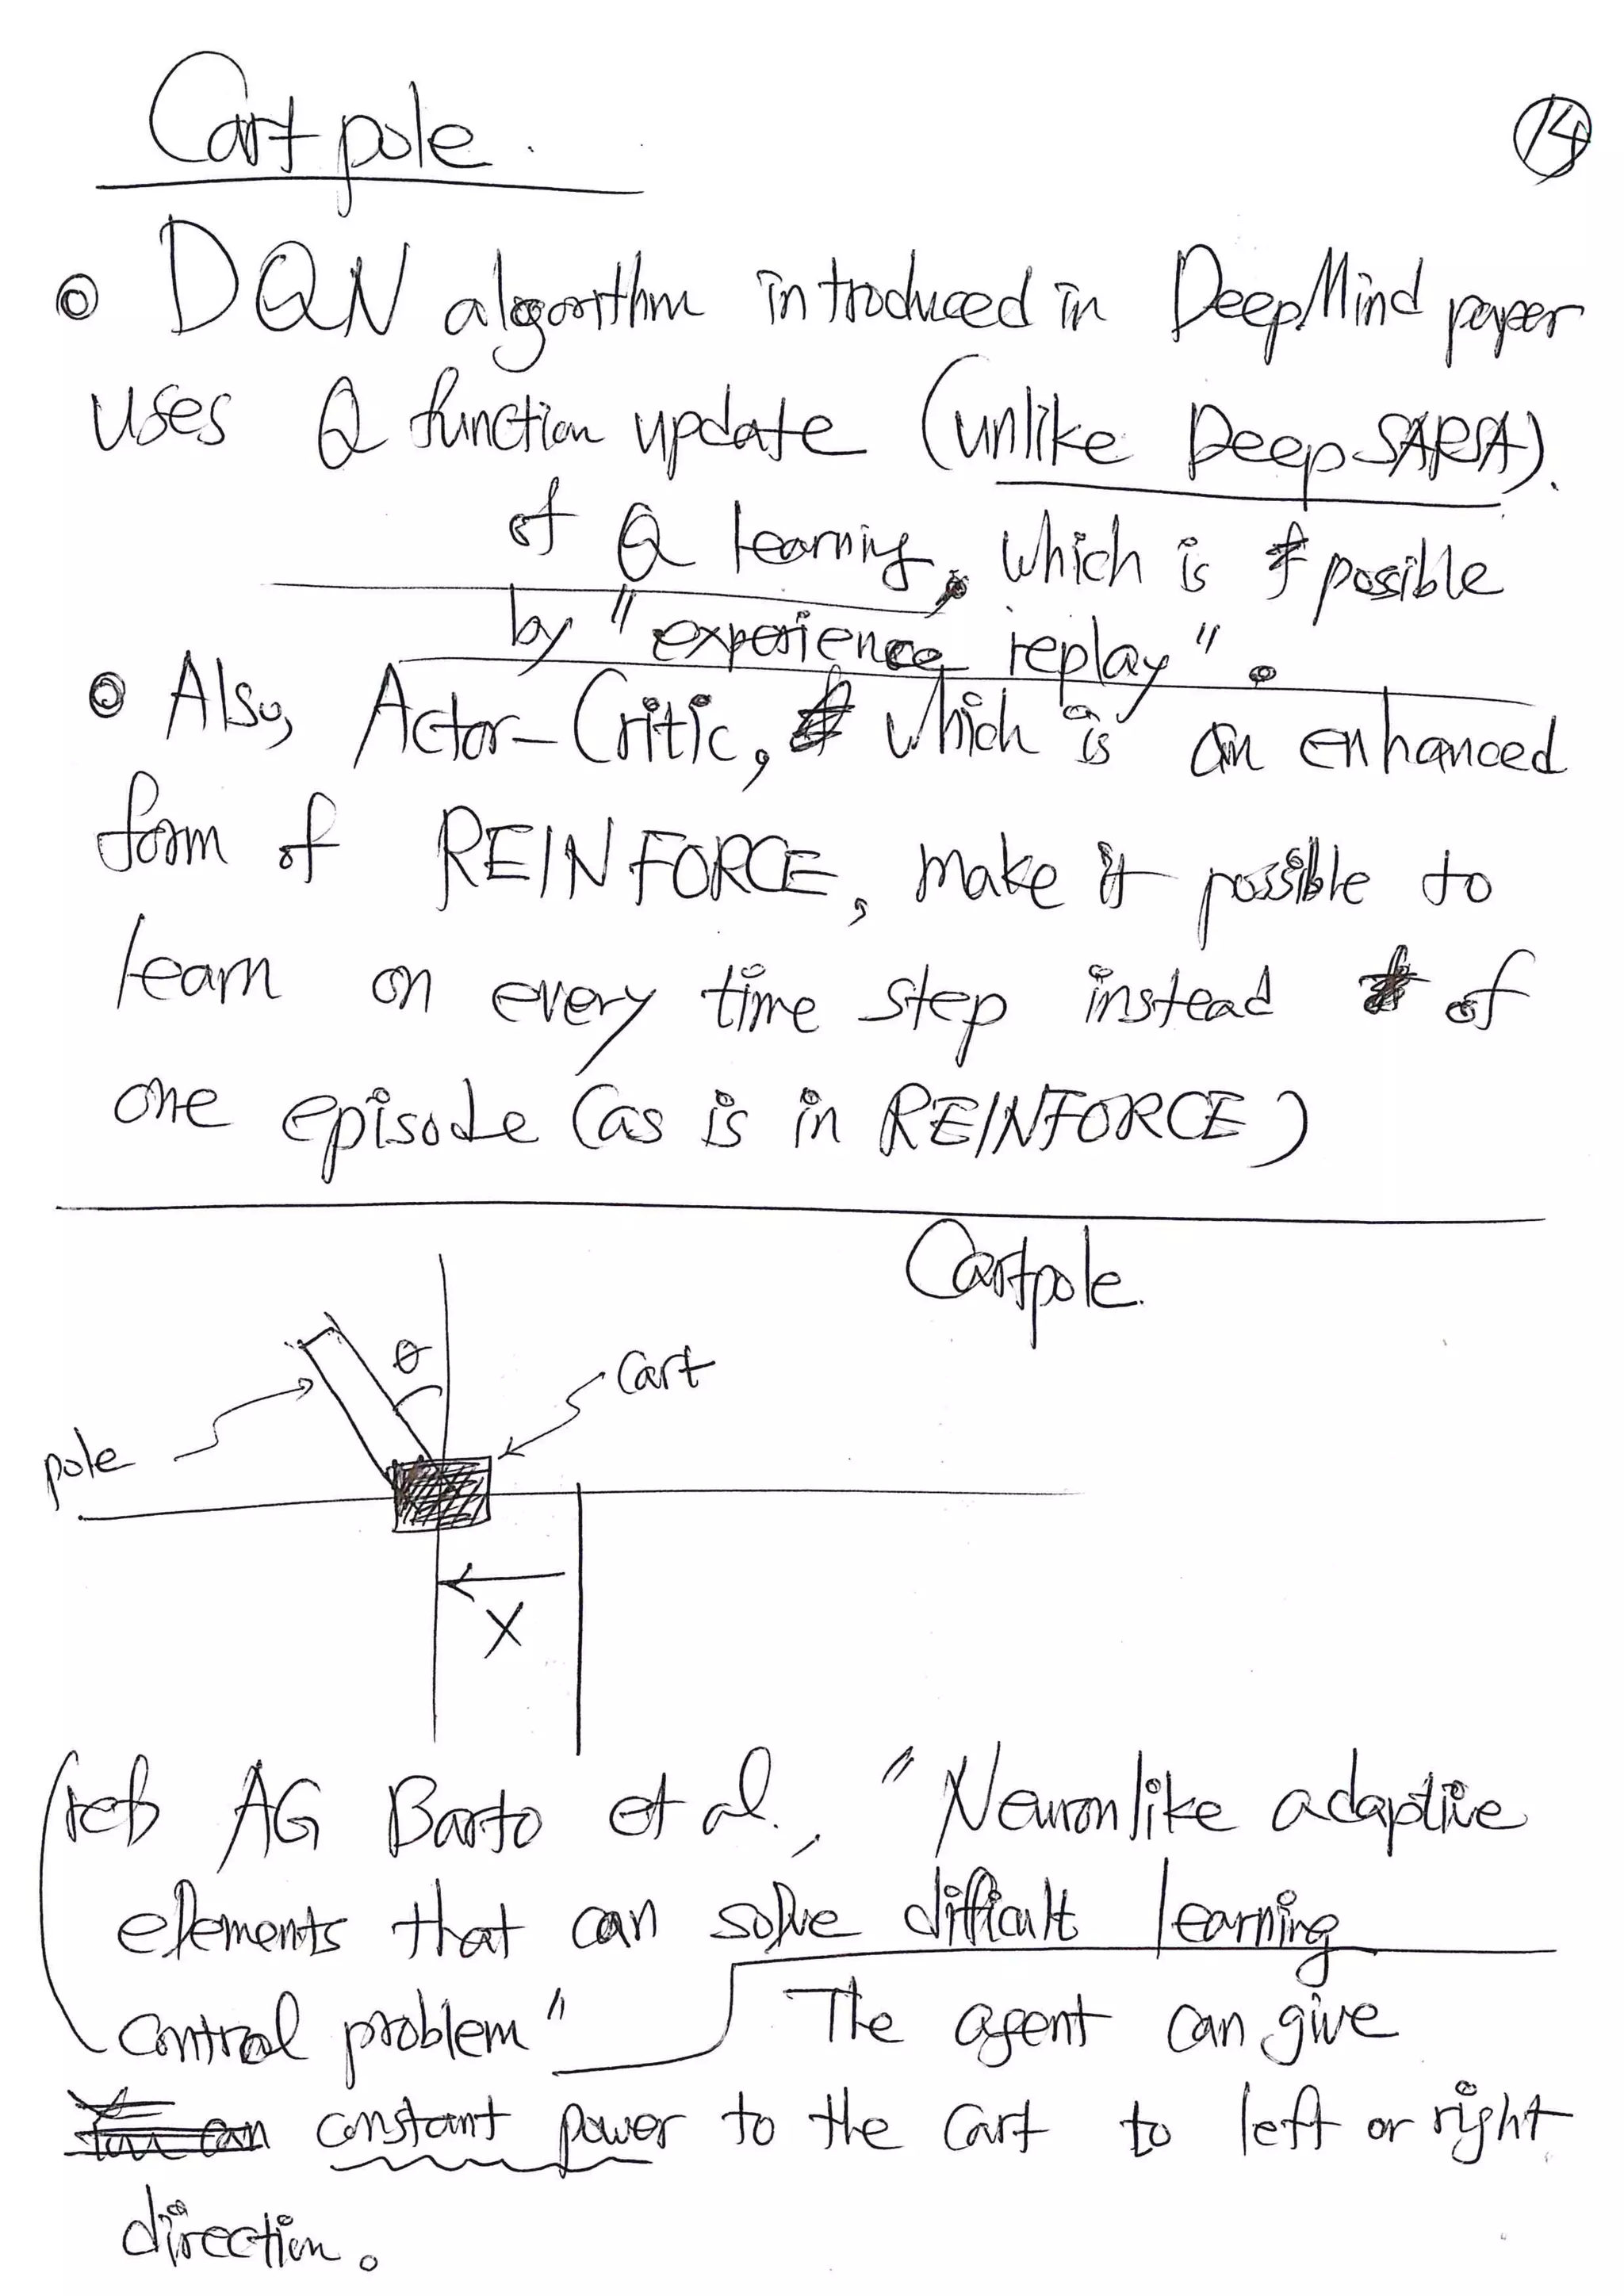 Cartpole.
14
DQN algorithm introduced in DeepMind paper
uses Q function update (unlike Deep SARSA).
of Q learning, which is possible
by "experience replay".
Also, Actor-Critic, which is an enhanced
form of REINFORCE, make it possible to
learn on every time step instead of
one episode (as is in REINFORCE)
Cartpole.
θ
cart
pole
X
AG Barto et al., "Neuronlike adaptive
elements that can solve difficult learning
control problem"
The agent can give
constant power to the cart to left or right
direction.